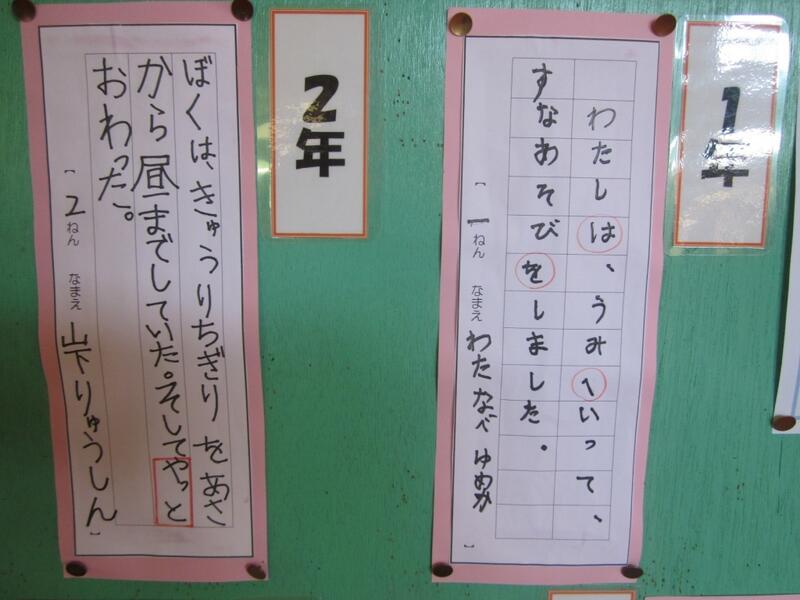 1年
わたしは、うみへいって、
すなあそびをしました。
【一ねん なまえ わたなべ ゆめか】
2年
ぼくは、きゅうりちぎりをあさ
から昼までしていた。そしてやっと
おわった。
【2ねん なまえ 山下りゅうしん】